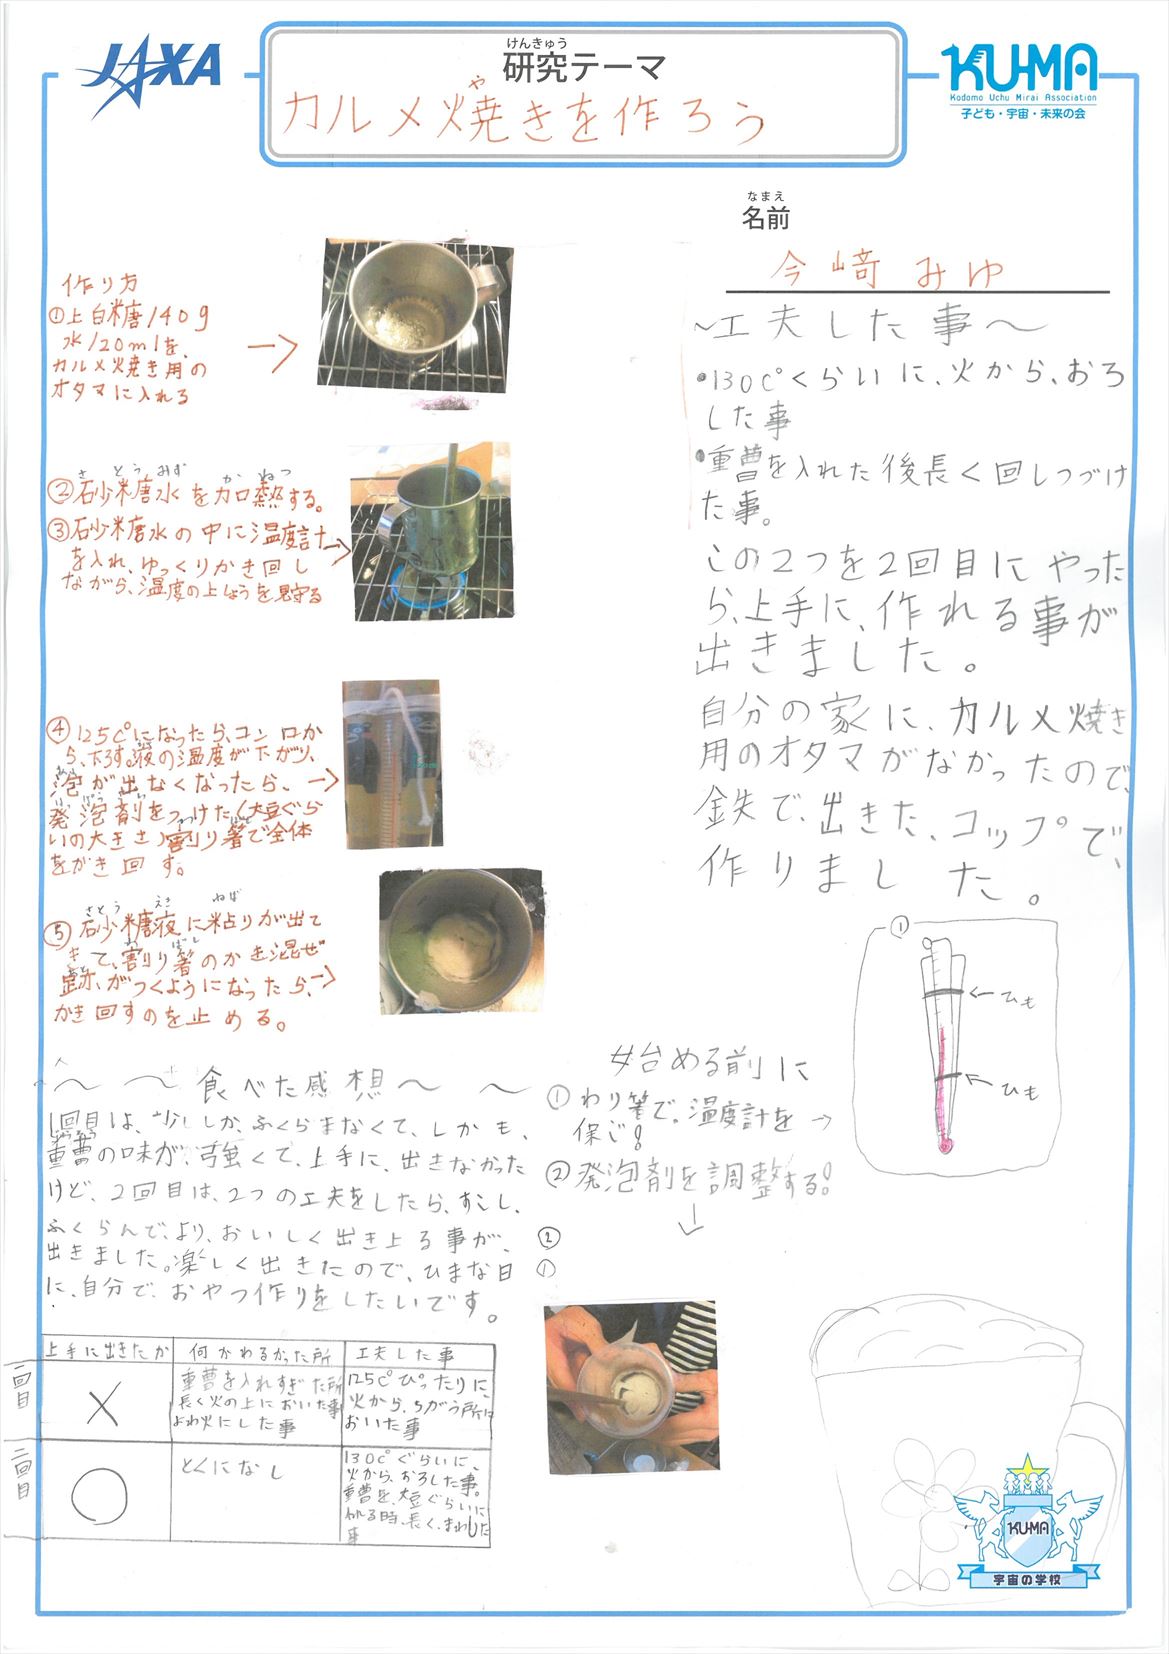 JAXA
けんきゅう
研究テーマ
や
カルメ焼きを作ろう
KU-MA
Kodomo Uchu Mirai Association
子ども・宇宙・未来の会
なまえ
名前
今﨑みゆ
作り方
①上白糖140g
水120mlを、
カルメ焼き用の
オタマに入れる
さとうみず かねつ
②砂糖水を加熱する。
③砂糖水の中に温度計
を入れ、ゆっくりかき回し
ながら、温度の上しょうを見守る
④125C°になったら、コンロか
ら、下ろす。液の温度が下がり、
泡が出なくなったら、
発泡剤をつけた(大豆ぐら
いの大きさ)割り箸で全体
をかき回す。
さとう えき ねば
⑤砂糖液に粘りが出て
わ ばし
きて、割り箸のかき混ぜ
跡、がつくようになったら、
かき回すのを止める。
〜工夫した事〜
•130C°くらいに、火から、おろ
した事
•重曹を入れた後長く回しつづけ
た事。
この2つを2回目にやった
ら、上手に、作れる事が
出きました。
自分の家に、カルメ焼き
用のオタマがなかったので、
鉄で、出きた、コップで、
作りました。
①
←ひも
←ひも
〜〜食べた感想〜〜
1回目は、少ししか、ふくらまなくて、しかも、
じゅうそう
重曹の味が、強くて、上手に、出きなかった
けど、2回目は、2つの工夫をしたら、すこし、
ふくらんで、より、おいしく出き上る事が、
出きました。楽しく出きたので、ひまな日
に、自分で、おやつ作りをしたいです。
始める前に
①わり箸で。温度計を→
保じ!
②発泡剤を調整する!
②
①
上手に出きたか 何がわるかった所 工夫した事
一回目 × 重曹を入れすぎた所 125C°ぴったりに、
長く火の上においた事 火から、ちがう所に
よわ火にした事 おいた事
二回目 ○ とくになし 130C°ぐらいに、
火から、おろした事。
重曹を、大豆ぐらいに
入れる時、長く、まわした
事
KU-MA
宇宙の学校